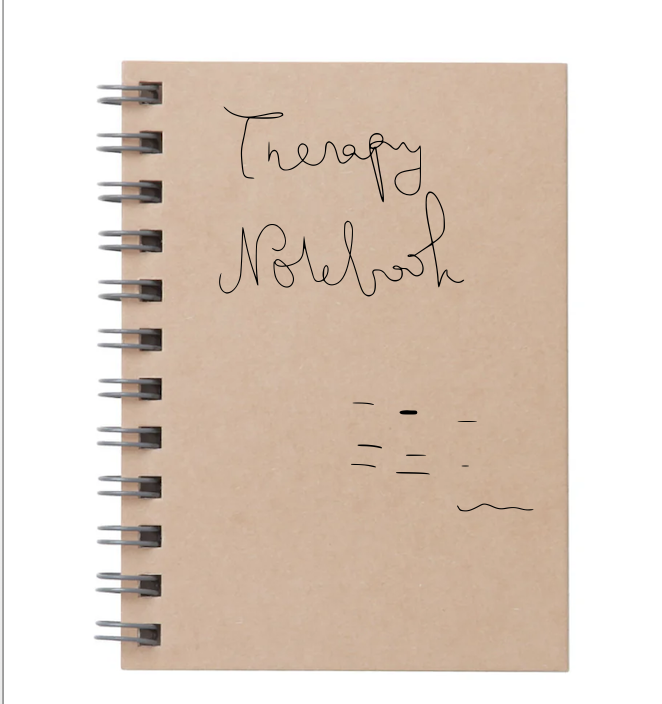 Therapy
Notebook